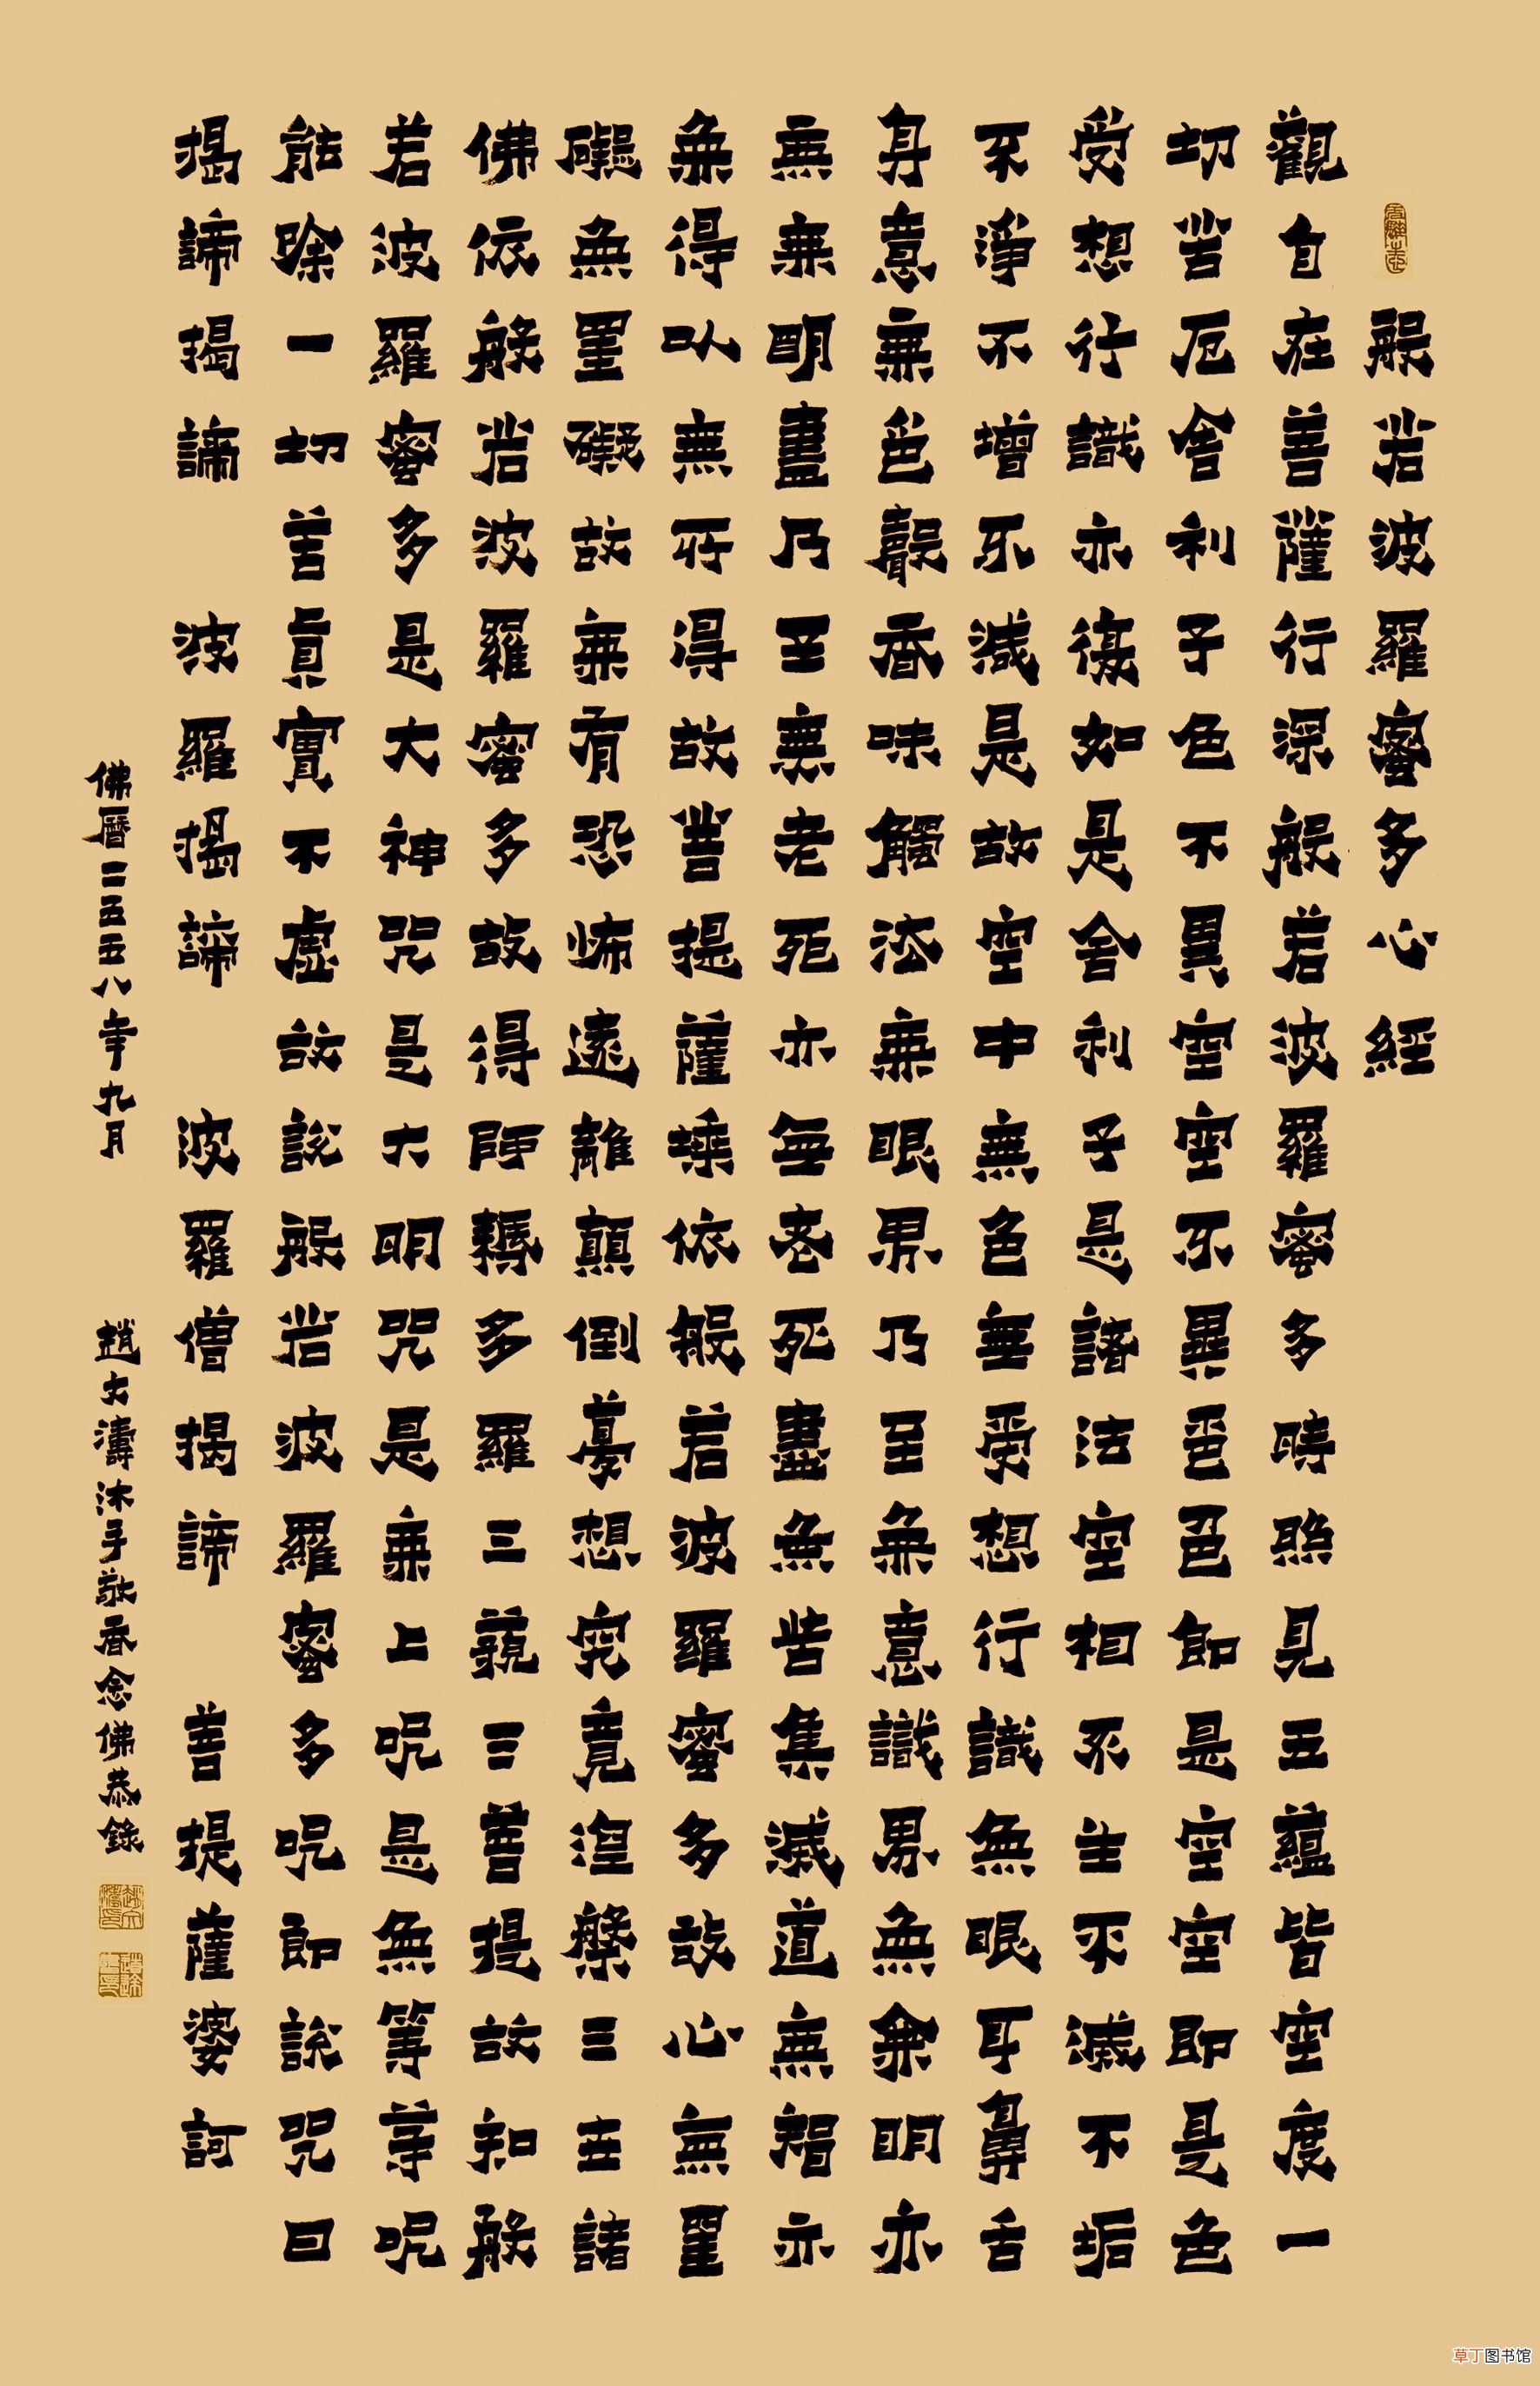 般若波羅蜜多心經
觀自在菩薩行深般若波羅蜜多時照見五蘊皆空度一
切苦厄舍利子色不異空空不異色色即是空空即是色
受想行識亦復如是舍利子是諸法空相不生不滅不垢
不淨不增不減是故空中無色無受想行識無眼耳鼻舌
身意無色聲香味觸法無眼界乃至無意識界無無明亦
無無明盡乃至無老死亦無老死盡無苦集滅道無智亦
無得以無所得故菩提薩埵依般若波羅蜜多故心無罣
礙無罣礙故無有恐怖遠離顛倒夢想究竟涅槃三世諸
佛依般若波羅蜜多故得阿耨多羅三藐三菩提故知般
若波羅蜜多是大神咒是大明咒是無上呪是無等等呪
能除一切苦真實不虛故說般若波羅蜜多呪即說咒曰
揭諦揭諦 波羅揭諦 波羅僧揭諦 菩提薩婆訶
佛曆二五五八年九月 趙文濤沐手敬香念佛恭錄
草丁图书馆